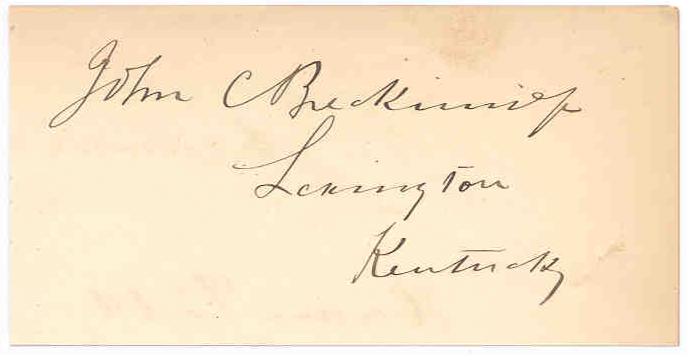 John C Breckinridge
Lexington
Kentucky